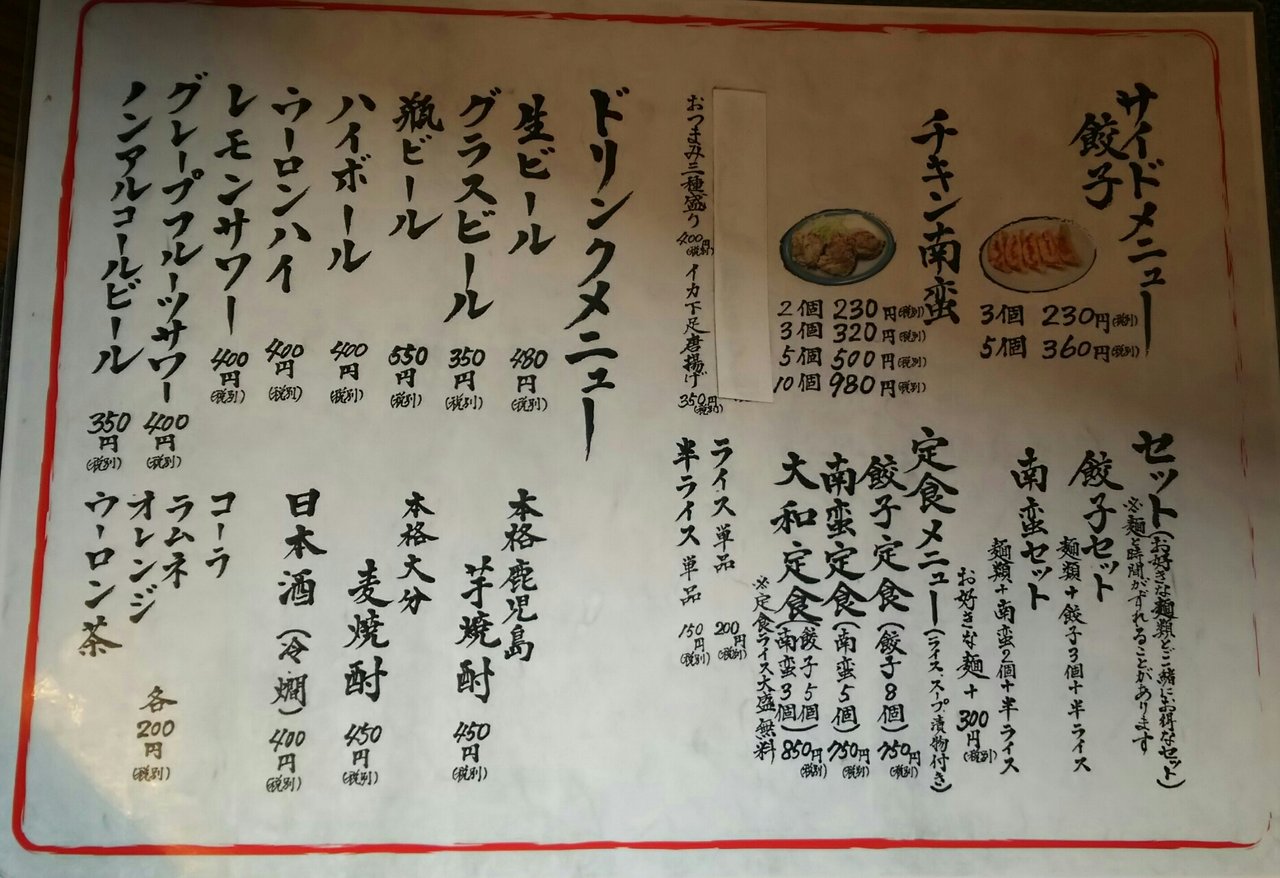 サイドメニュー
餃子
3個 230円(税別)
5個 360円(税別)
チキン南蛮
2個 230円(税別)
3個 320円(税別)
5個 500円(税別)
10個 980円(税別)
おつまみ三種盛り 400円(税別)
イカ下足唐揚げ 350円(税別)
セット(お好きな麺類とご一緒にお得なセット)
※麺と時間がずれることがあります
餃子セット
麺類+餃子3個+半ライス
南蛮セット
麺類+南蛮2個+半ライス
お好きな麺+300円(税別)
定食メニュー(ライス、スープ、漬物付き)
餃子定食(餃子8個)750円(税別)
南蛮定食(南蛮5個)750円(税別)
大和定食(餃子5個 南蛮3個)850円(税別)
※定食ライス大盛無料
ライス単品 200円(税別)
半ライス単品 150円(税別)
ドリンクメニュー
生ビール 480円(税別)
グラスビール 350円(税別)
瓶ビール 550円(税別)
ハイボール 400円(税別)
ウーロンハイ 400円(税別)
レモンサワー 400円(税別)
グレープフルーツサワー 400円(税別)
ノンアルコールビール 350円(税別)
本格鹿児島
芋焼酎 450円(税別)
本格大分
麦焼酎 450円(税別)
日本酒(冷燗)400円(税別)
コーラ
ラムネ
オレンジ
ウーロン茶
各200円(税別)